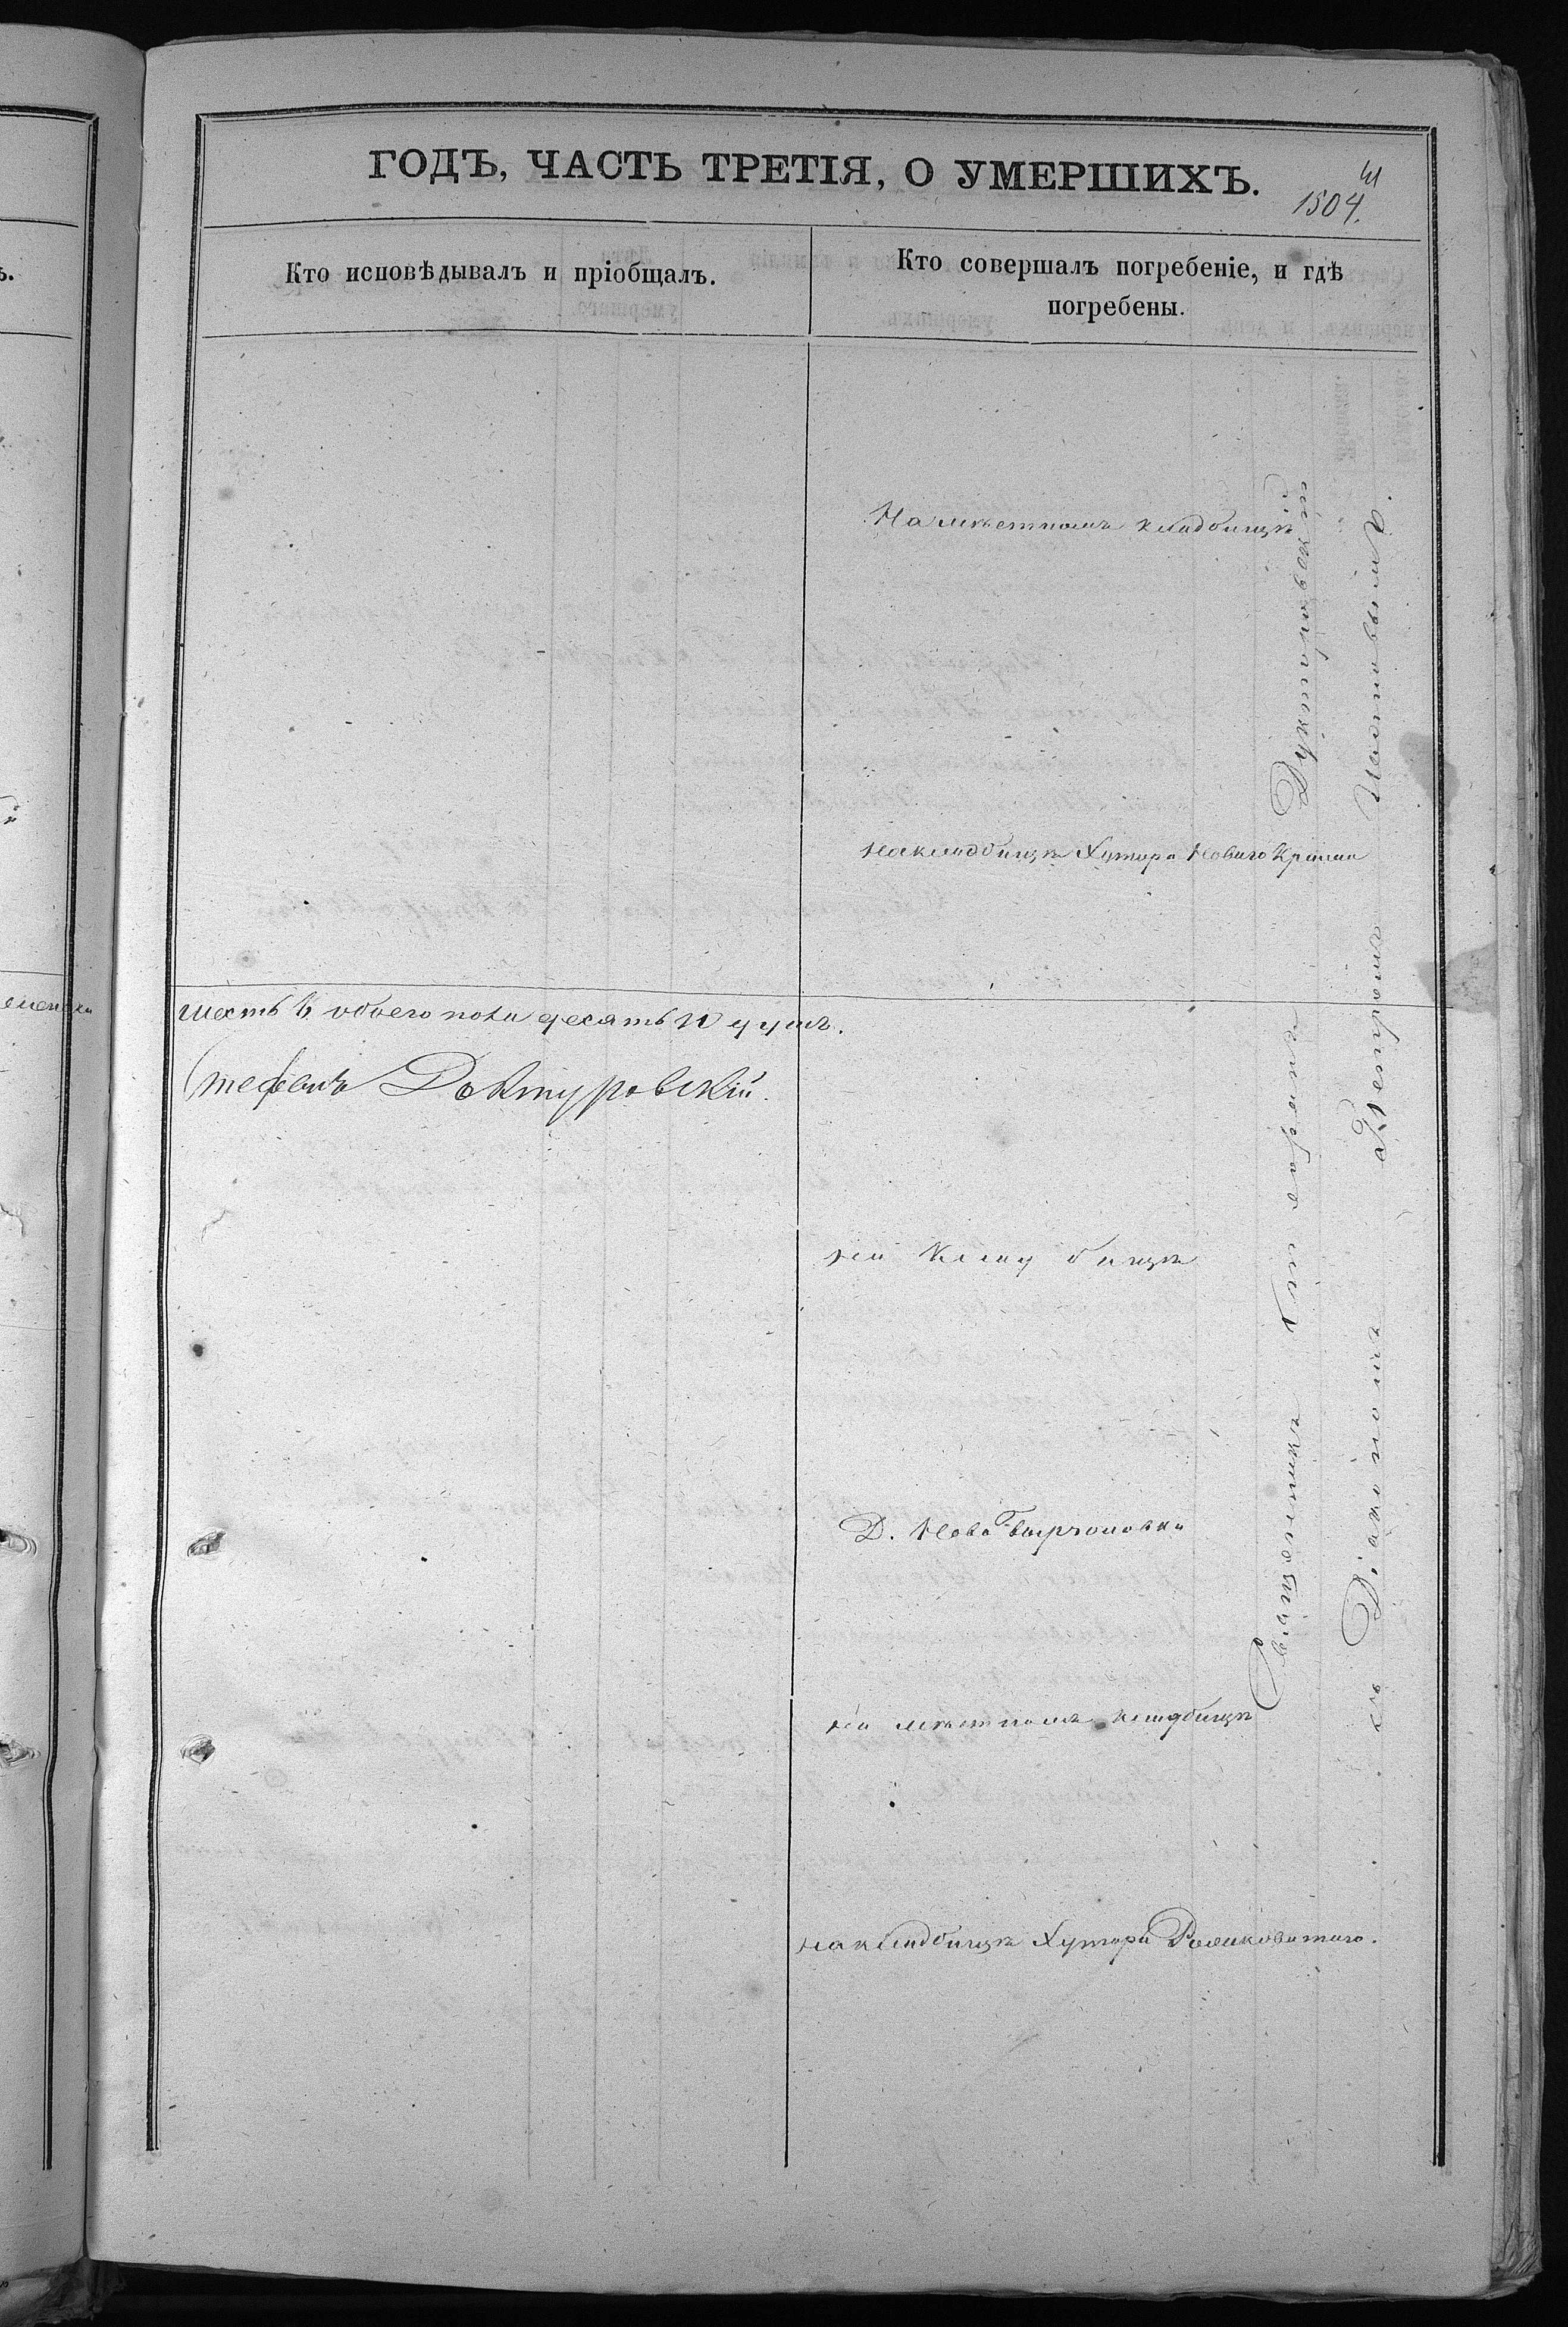 ГОДЪ, ЧАСТЬ ТРЕТІЯ, О УМЕРШИХЪ.
1504.
Кто исповѣдывалъ и пріобщалъ.
Кто совершалъ погребеніе, и гдѣ
погребены.
На мѣстномъ кладбищѣ
На кладбищѣ Хутора Новаго
шесть 6 обоего пола десять 10 душъ.
Стефанъ Доктуровскій.
на кладбищѣ
Д. Ново
на мѣстномъ кладбищѣ
на кладбищѣ Хутора
Священникъ Доктуровскій
съ Діакономъ Петромъ